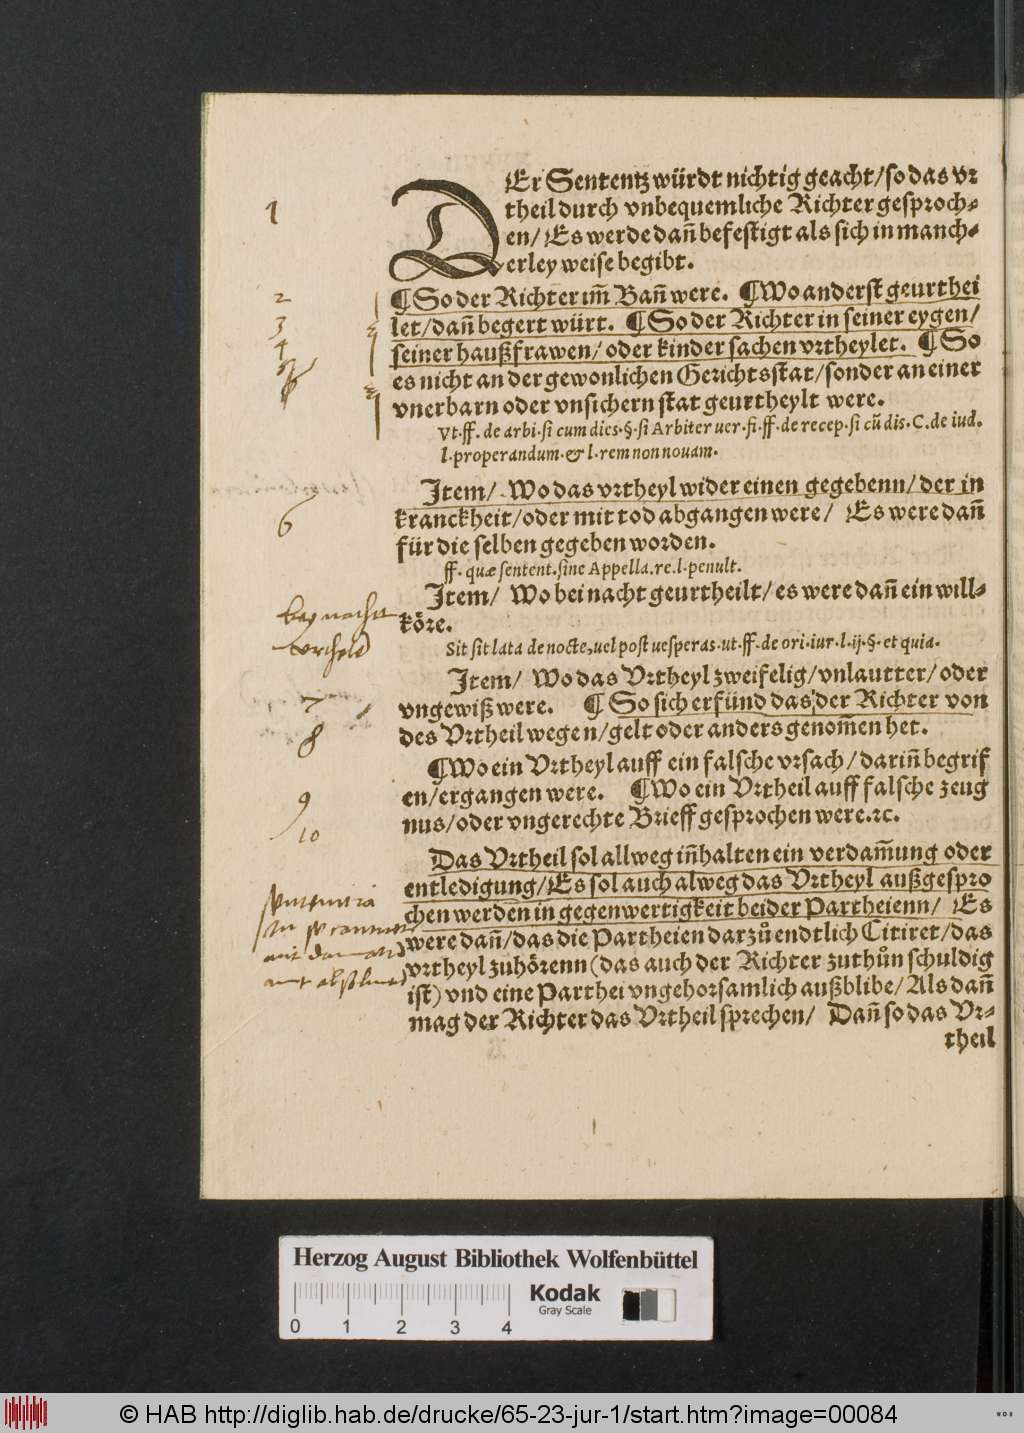 DEr Sententz würdt nichtig geacht/so das vr
theil durch vnbequemliche Richter gesproch-
en/ Es werde dañ befestigt als sich in manch-
erley weise begibt.
1
¶So der Richter im̃ Bañ were. ¶Wo anderst geurthei
let/dañ begert würt. ¶So der Richter in seiner eygen/
seiner haußfrawen/oder kinder sachen vrtheylet. ¶So
es nicht an der gewonlichen Gerichtsstat/sonder an einer
vnerbarn oder vnsichern stat geurtheylt were.
2
3
4
Vt.ff. de arbi.si cum dies.§.si Arbiter uer.fi.ff.de recep.si cũ dis.C.de iud.
l.properandum.& l.rem non nouam.
Item/ Wo das vrtheyl wider einen gegebenn/der in
kranckheit/oder mit tod abgangen were/ Es were dañ
für die selben gegeben worden.
6
ff. quæ sentent.sine Appella.re.l.penult.
Item/ Wo bei nacht geurtheilt/es were dañ ein will-
köre.
bey nacht
Sit sit lata de nocte,uel post uesperas.ut.ff.de ori.iur.l.ij.§.et quia.
Item/ Wo das Vrtheyl zweifelig/vnlautter/oder
vngewiß were. ¶ So sich erfünd das der Richter von
des Vrtheil wegen/gelt oder anders genom̃en het.
7
8
¶Wo ein Vrtheyl auff ein falsche vrsach/dariñ begrif
en/ergangen were. ¶Wo ein Vrtheil auff falsche zeug
nus/oder vngerechte Brieff gesprochen were.ꝛc.
9
10
Das Vrtheil sol allweg iñhalten ein verdam̃ung oder
entledigung/Es sol auch alweg das Vrtheyl außgespro
chen werden in gegenwertigkeit beider Partheienn/ Es
were dañ/das die Partheien darzů endtlich Citiret/das
vrtheyl zuhörenn (das auch der Richter zuthůn schuldig
ist) vnd eine Parthei vngehorsamlich außblibe/Als dañ
mag der Richter das Vrtheil sprechen/ Dañ so das Vr-
theil
sententia
Herzog August Bibliothek Wolfenbüttel
Kodak
Gray Scale
0 1 2 3 4
© HAB http://diglib.hab.de/drucke/65-23-jur-1/start.htm?image=00084